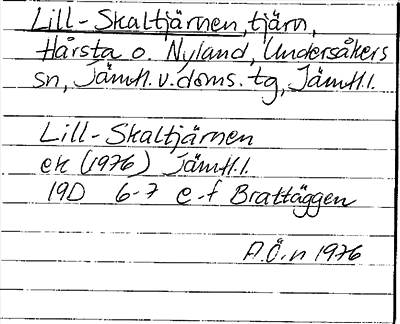 Lill-Skaltjärnen, tjärn,
Hårsta o. Nyland, Undersåkers
sn, Jämtl. v. doms. tg, Jämtl. l.
Lill-Skaltjärnen
ek (1976) Jämtl. l.
19D 6-7 e-f Brattäggen
A.Ö.n 1976